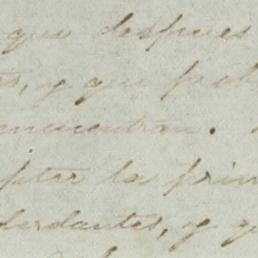 que despues
s, y que
encuentran.
ptar la prin
dantes, y q